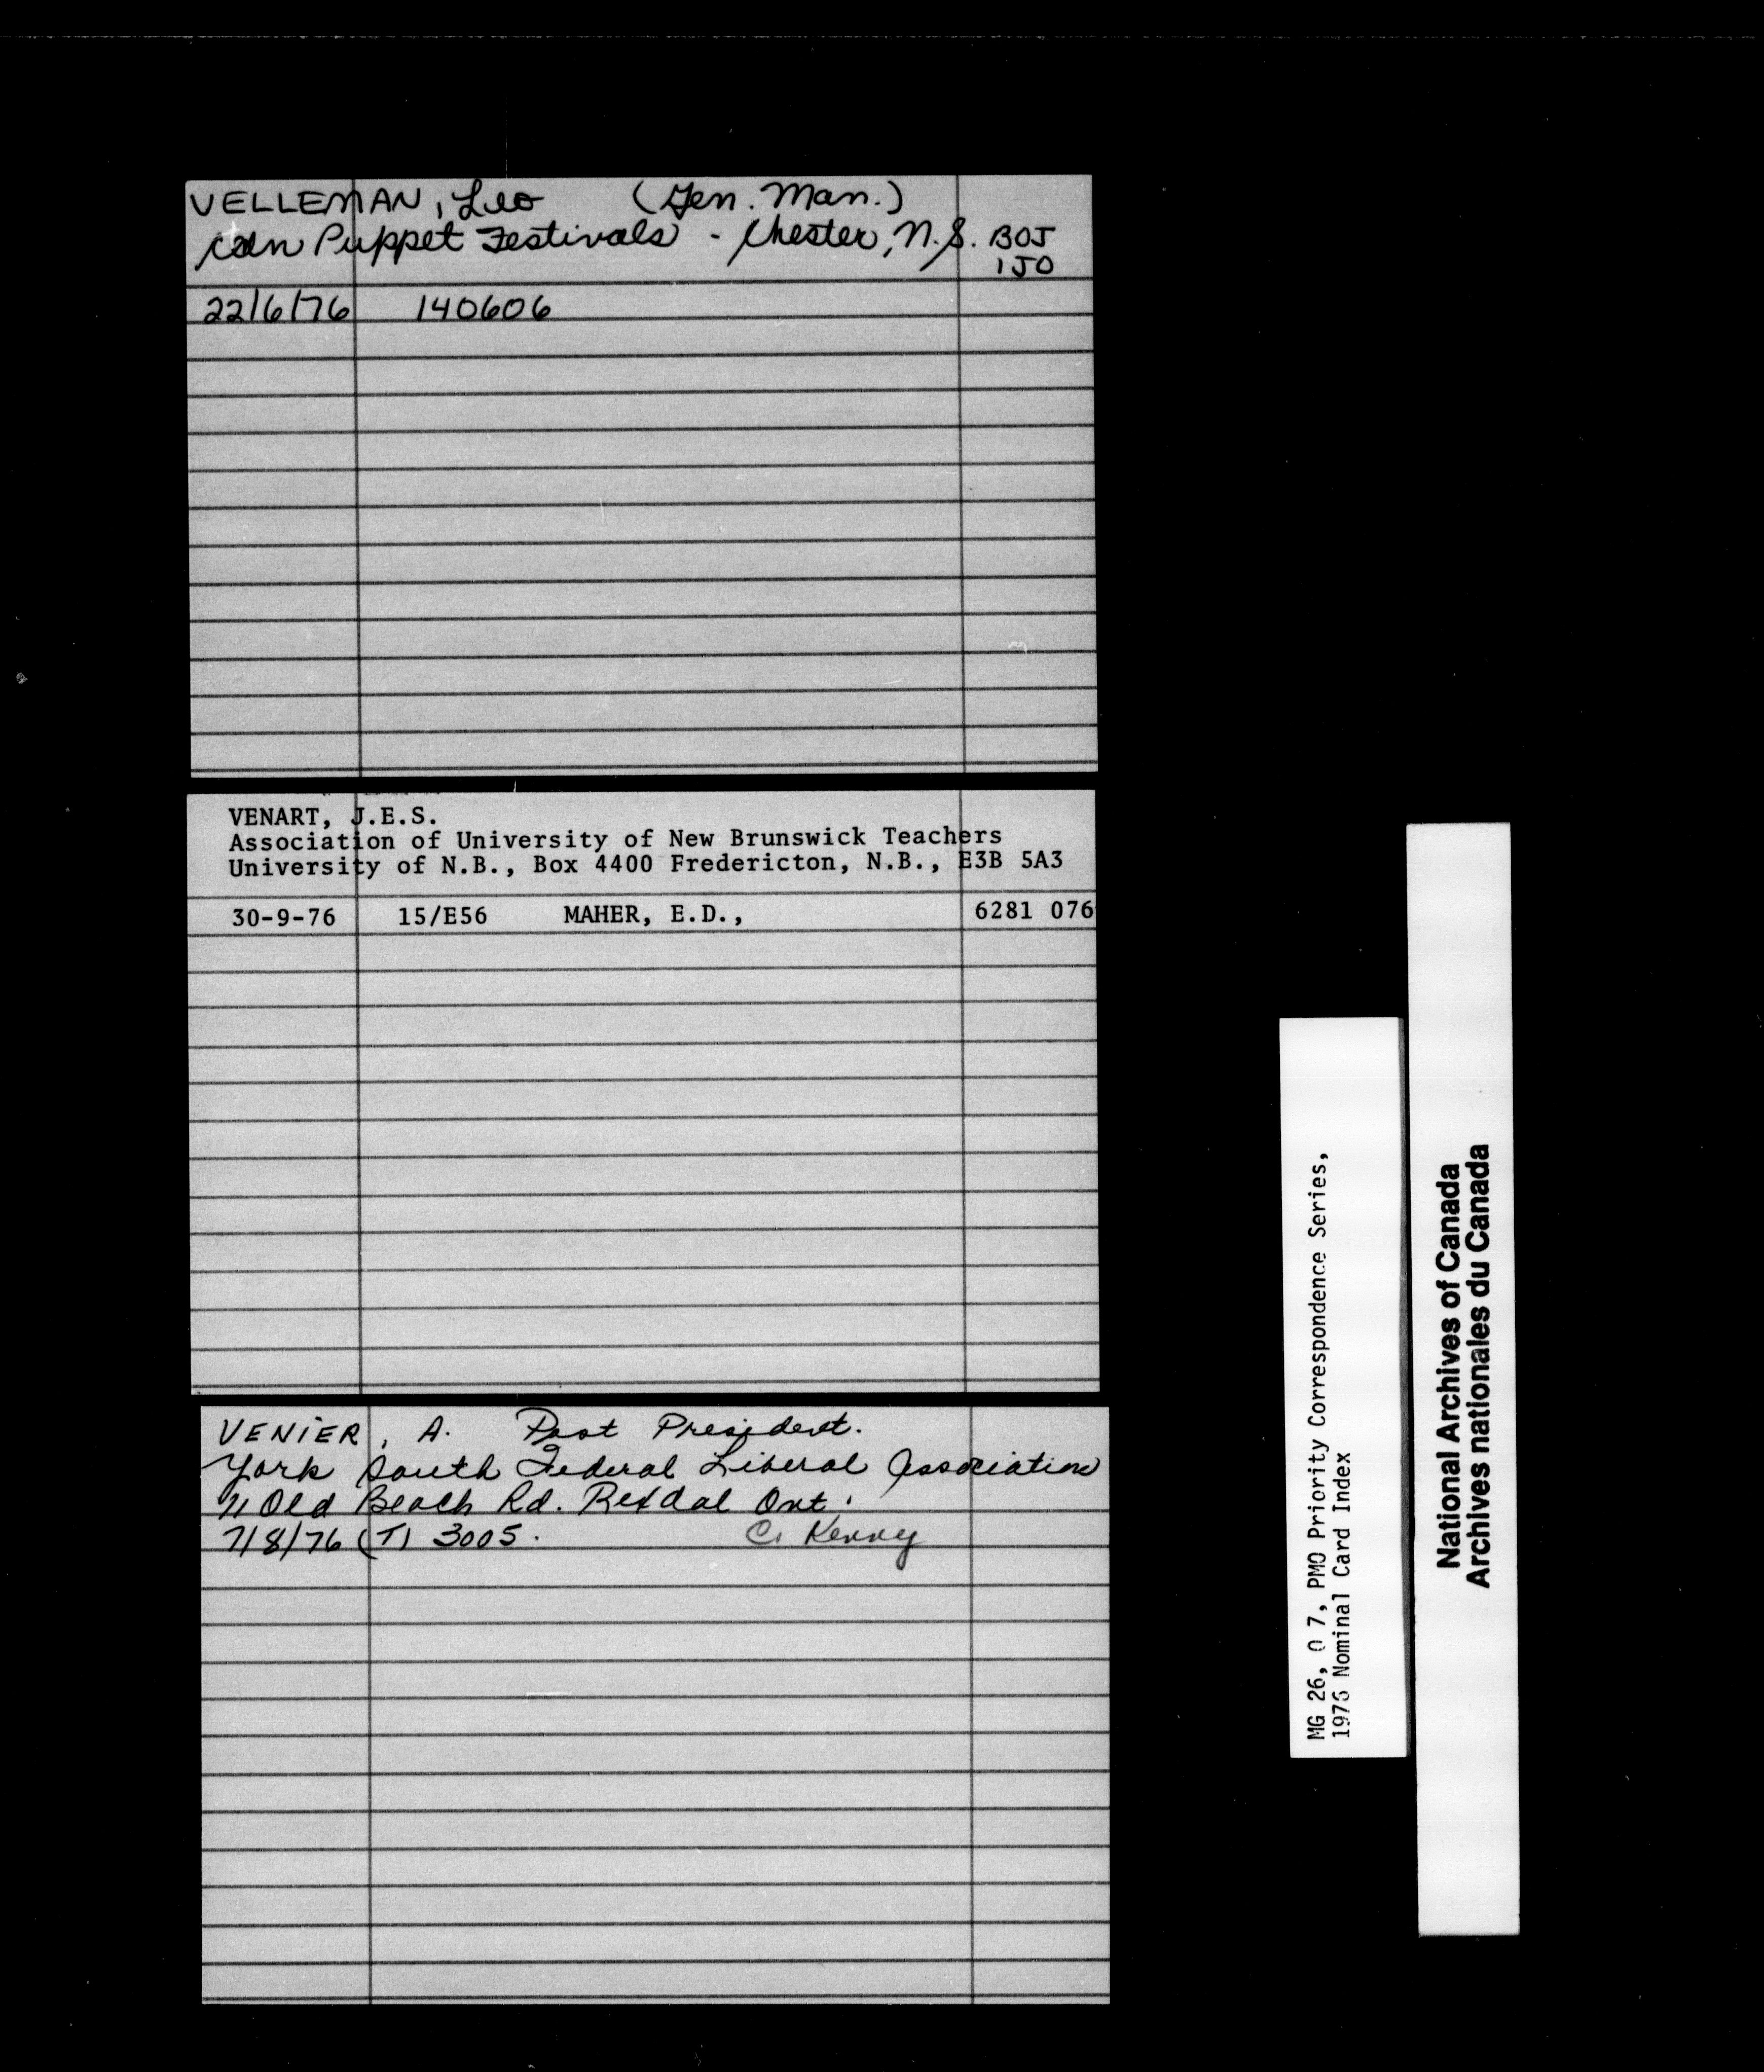 VELLEMAN, Leo (Gen. Man.)
Cdn Puppet Festivals - Chester, N.S. BOJ
1JO
22/6/76 140606
VENART, J.E.S.
Association of University of New Brunswick Teachers
University of N.B., Box 4400 Fredericton, N.B., E3B 5A3
30-9-76 15/E56 MAHER, E.D., 6281 076
VENIER, A. Past President.
York South Federal Liberal Association
11 Old Beach Rd. Rexdal Ont.
7/8/76 (T) 3005. C. Kenny
MG 26, O 7, PMO Priority Correspondence Series,
1976 Nominal Card Index
National Archives of Canada
Archives nationales du Canada